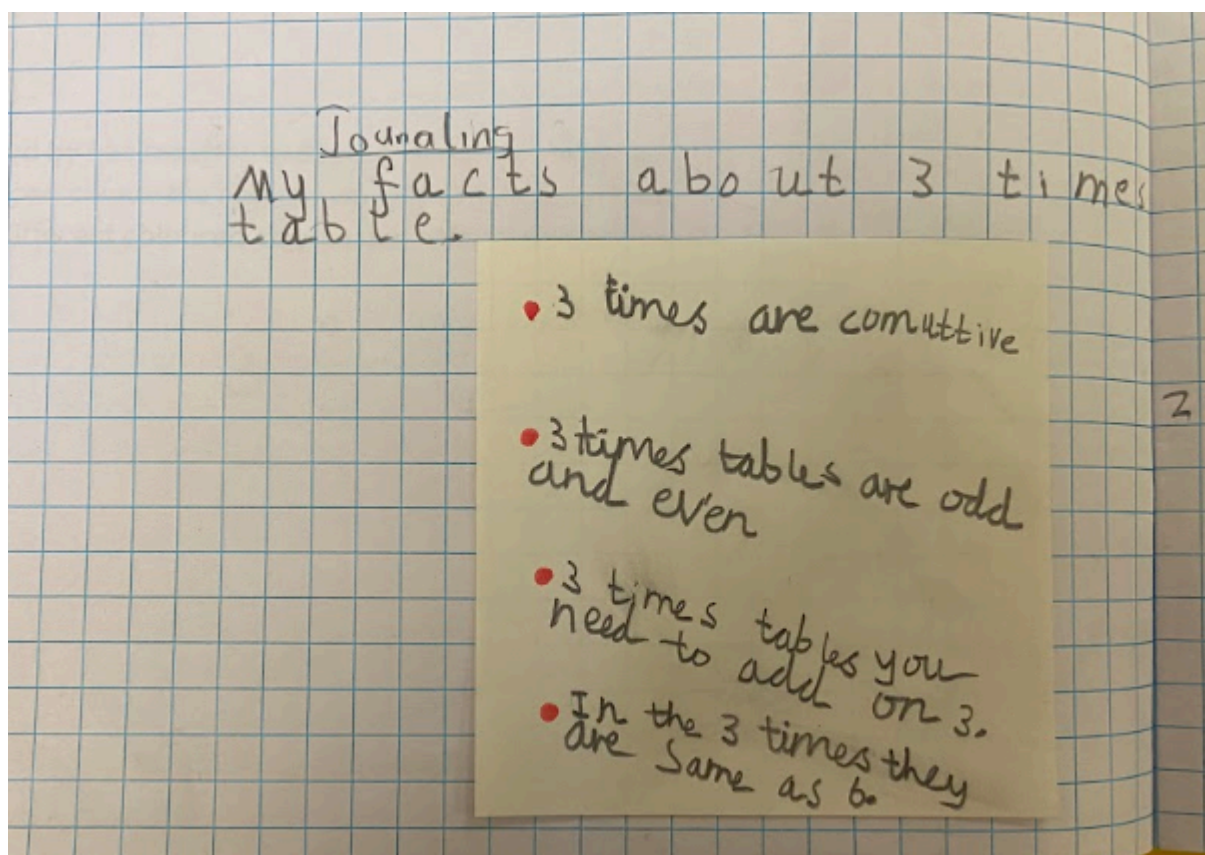 Jounaling
My facts about 3 times
table.
• 3 times are comuttive
• 3 times tables are odd
and even
• 3 times tables you
need to add on 3.
• In the 3 times they
are Same as 6.
2